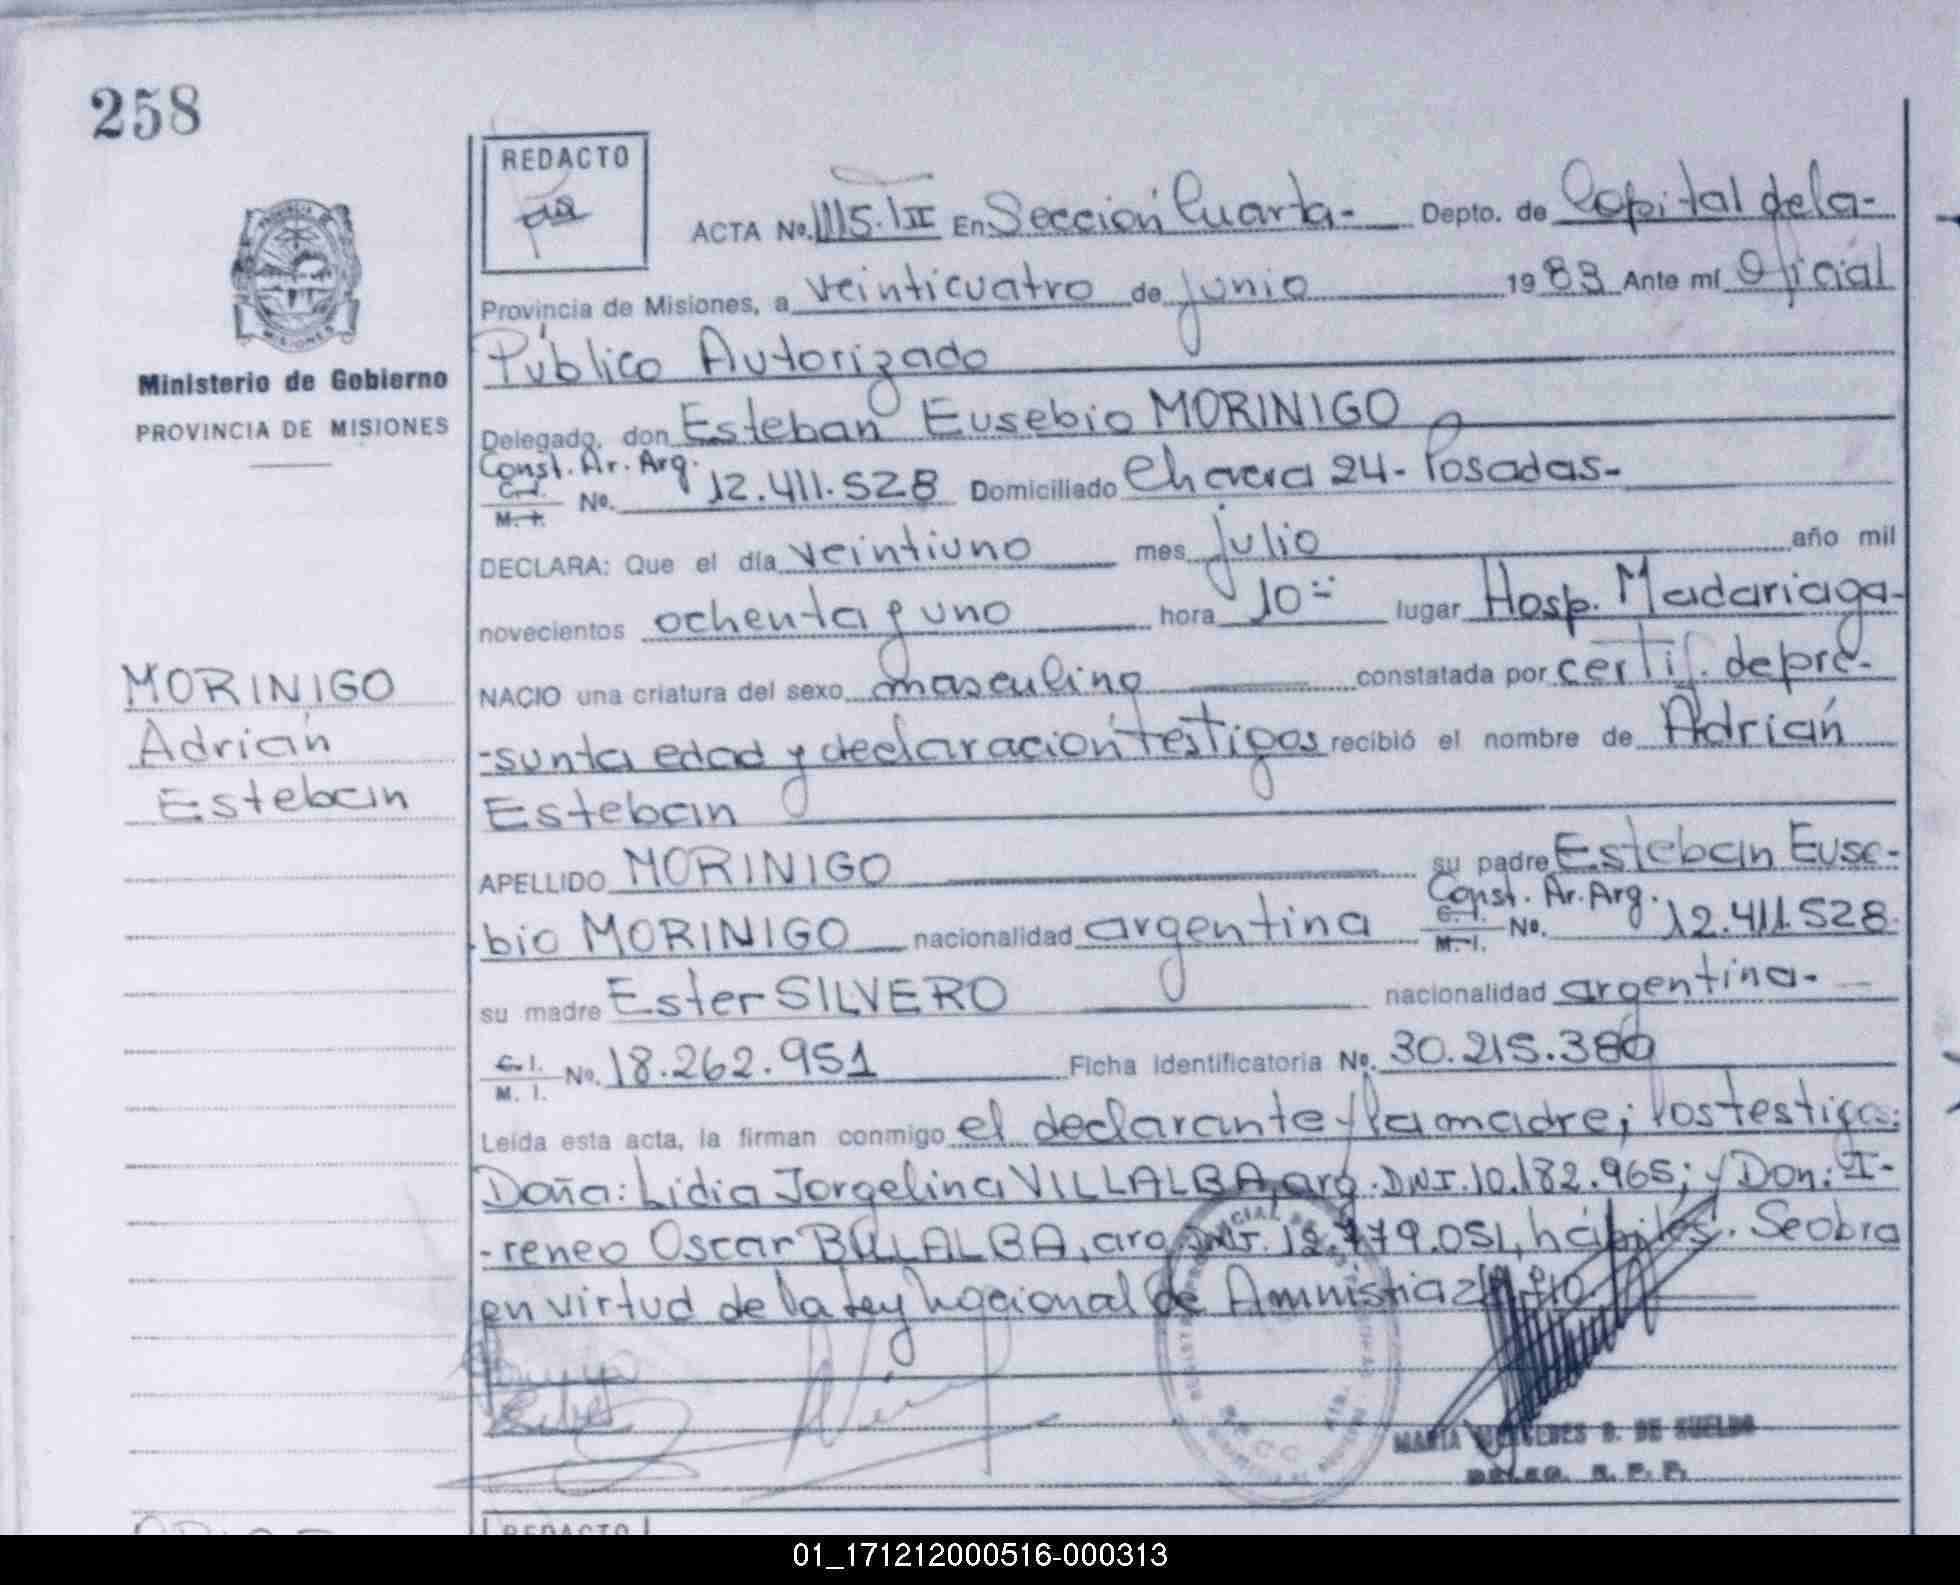 258
REDACTO
ACTA No. 1115.III En Sección Cuarta- Depto. de Capital de la-
Provincia de Misiones, a veinticuatro de junio 1983 Ante mí Oficial
Público Autorizado
Ministerio de Gobierno
PROVINCIA DE MISIONES
Delegado, don Esteban Eusebio MORINIGO
Const. Ar. Arg.
C. I.
M. I. No. 12.411.528 Domiciliado Chacra 24- Posadas-
DECLARA: Que el día veintiuno mes julio año mil
novecientos ochenta y uno hora 10 lugar Hosp. Madariaga-
MORINIGO
Adrián
Esteban
NACIO una criatura del sexo masculino constatada por certif. de pre-
-sunta edad y declaración testigos recibió el nombre de Adrián
Esteban
APELLIDO MORINIGO su padre Esteban Euse-
Const. Ar. Arg.
bio MORINIGO nacionalidad argentina C. I. M. I. No. 12.411.528.
su madre Ester SILVERO nacionalidad argentina-
C. I.
M. I. No. 18.262.951 Ficha Identificatoria No. 30.215.380
Leída esta acta, la firman conmigo el declarante y la madre; los testigos:
Doña: Lidia Jorgelina VILLALBA, arg. DNI. 10.182.965; y Don: I-
-reneo Oscar arg. DNI. hábiles. Se obra
en virtud de la Ley Nacional de Amnistia
MARIA MERCEDES B. DE SUELDO
DELEG. R. P. P.
REDACTO
01_171212000516-000313